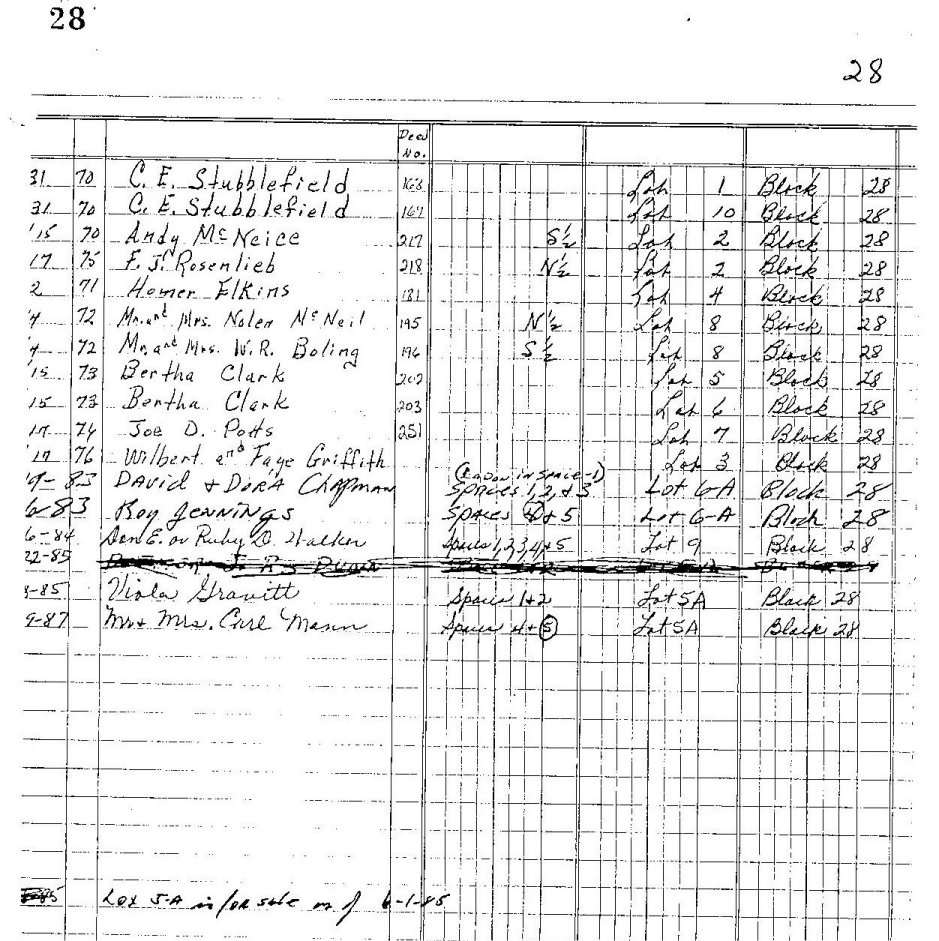 28
28
Deed No.
31 70 C. E. Stubblefield 168 Lot 1 Block 28
31 70 C. E. Stubblefield 169 Lot 10 Block 28
15 70 Andy McNeice 217 S½ Lot 2 Block 28
17 75 F. J. Rosenlieb 218 N½ Lot 2 Block 28
2 71 Homer Elkins 181 Lot 4 Block 28
4 72 Mr. and Mrs. Nolen McNeil 195 N½ Lot 8 Block 28
4 72 Mr. and Mrs. W. R. Boling 196 S½ Lot 8 Block 28
15 73 Bertha Clark 202 Lot 5 Block 28
15 73 Bertha Clark 203 Lot 6 Block 28
17 74 Joe D. Potts 251 Lot 7 Block 28
17 76 Wilbert and Faye Griffith Lot 3 Block 28
in space-1)
9-83 DAVID + DORA CHAPMAN SPACES 1, 2, + 3 LOT 6-A Block 28
6-83 Roy JENNINGS SPACES 4 + 5 Lot 6-A Block 28
6-84 Den E. or Ruby D. Walker Spaces 1,2,3,4,+5 Lot 9 Block 28
22-85
-85 Viola Gravitt Spaces 1+2 Lot 5A Block 28
9-87 Mr + Mrs. Carl Mason Spaces 4+5 Lot 5A Block 28
Lot 5-A is for sale as of 6-1-85